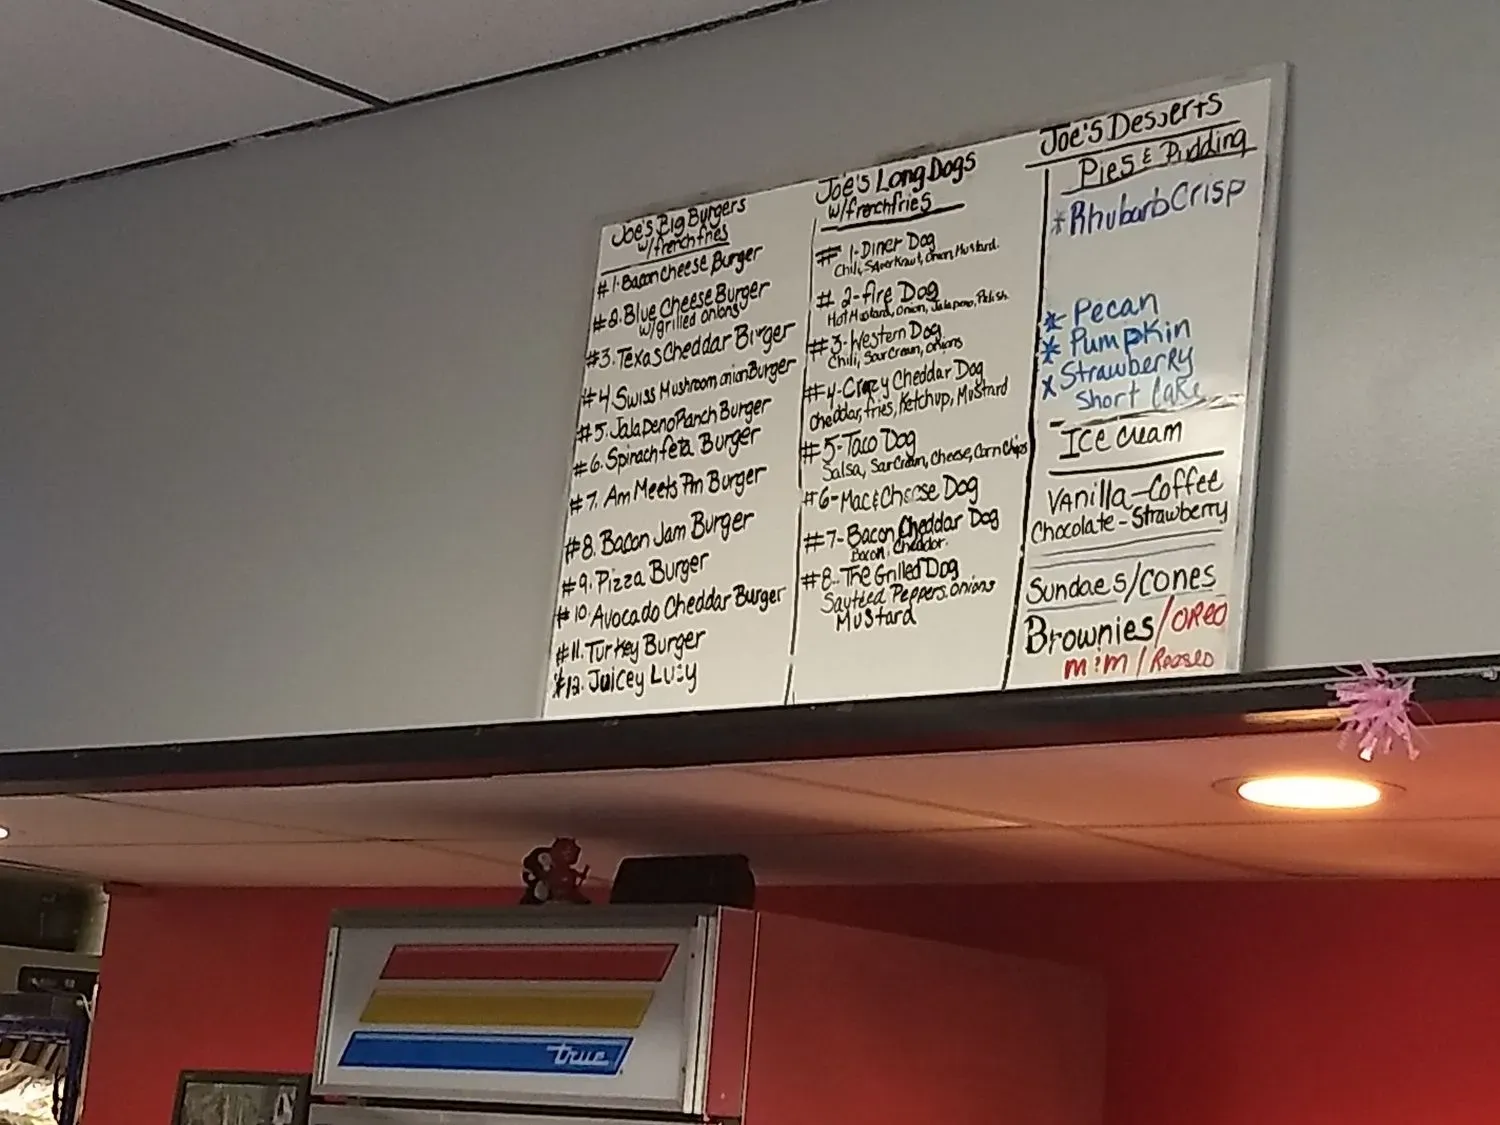 Joe's Big Burgers
w/french fries
#1. Bacon cheese Burger
#2. Blue Cheese Burger
w/grilled onions
#3. Texas Cheddar Burger
#4 Swiss Mushroom onion Burger
#5. Jalapeno Ranch Burger
#6. Spinach feta Burger
#7. Am Meets Pm Burger
#8. Bacon Jam Burger
#9. Pizza Burger
#10. Avocado Cheddar Burger
#11. Turkey Burger
#12. Juicey Lucy
Joe's Long Dogs
w/french fries
# 1-Diner Dog
Chili, Saverkraut, Onion, Mustard.
# 2-fire Dog
Hot Mustard, Onion, Jalapeno, Relish.
#3-Western Dog
Chili, Sour Cream, Onions
#4-Crazy Cheddar Dog
Cheddar, fries, Ketchup, Mustard
#5-Taco Dog
Salsa, Sour Cream, Cheese, Corn Chips
#6-Mac & Cheese Dog
#7-Bacon Cheddar Dog
Bacon, Cheddar.
#8-The Grilled Dog
Sautéed Peppers, Onions
Mustard
Joe's Desserts
Pies & Pudding
* Rhubarb Crisp
* Pecan
* Pumpkin
* Strawberry
Short Cake
Ice cream
Vanilla-Coffee
Chocolate-Strawberry
Sundaes/Cones
Brownies/OREO
m:m/Reeses
true